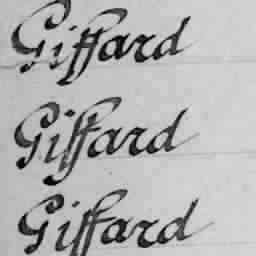 Giffard
Giffard
Giffard